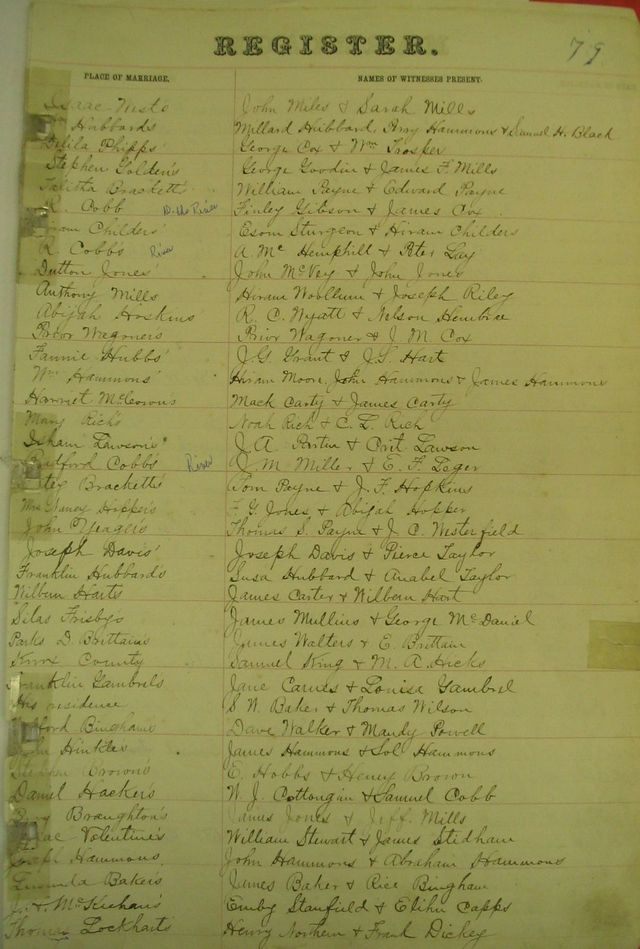 REGISTER.
79
PLACE OF MARRIAGE. NAMES OF WITNESSES PRESENT.
Isaac John Mills & Sarah Mills
Hubbards Millard Hubbard, Amy Hammons & Samuel H. Black
Delila Phipps' George Cox & Wm Prosper
Stephen Golden's George Goodin & James F. Mills
Talitha Brackett's William Payne & Edward Payne
R. Cobb River Finley Gibson & James Cox
Hiram Childers' Esom Sturgeon & Hiram Childers
R. Cobb's River A. Mc Hemphill & Peter Lay
Dutton Jones' John McVey & John Jones
Anthony Mills Hiram Woollum & Joseph Riley
Abijah Hoskins' R. C. Wyatt & Nelson Hembree
Prior Wagoner's Prior Wagoner & J. M. Cox
Fannie Hubbs' J. G. Grant & J. S. Hart
Wm Hammons' Hiram Moore, John Hammons & James Hammons
Harriet McCowns Mack Carty & James Carty
Mary Rich's Noah Rich & C. L. Rich
Isham Lawson's J. A. Partin & Crit Lawson
Radford Cobb's River J. M. Miller & E. F. Leger
Brackett's Tom Payne & J. F. Hopkins
Mrs Nancy Hopper's F. G. Jones & Abijah Hopper
John Yeagles Thomas S. Payne & J. C. Westerfield
Joseph Davis' Joseph Davis & Pierce Taylor
Franklin Hubbards Susa Hubbard & Anabel Taylor
Wilburn Harts James Carter & Wilbern Hart
Silas Frisbys James Mullins & George McDaniel
Parks D. Brittains James Walters & E. Brittain
Knox County Samuel King & M. A. Hicks
Franklin Gambrels Jane Carnes & Louisa Gambrel
His residence S W. Baker & Thomas Wilson
Bingham's Dave Walker & Mandy Powell
Hinkles James Hammons & Sol Hammons
Stephen Brown's E. Hobbs & Henry Brown
Daniel Hackers W. J. Cottongim & Samuel Cobb
Broughton's James Jones & Jeff. Mills
Isaac Valentine's William Stewart & James Stidham
Joseph Hammons John Hammons & Abraham Hammons
Lucinda Bakers James Baker & Rice Bingham
J. H. McKeehan's Emby Stanfield & Elihu Capps
Thomas Lockharts Henry Northern & Frank Dickey